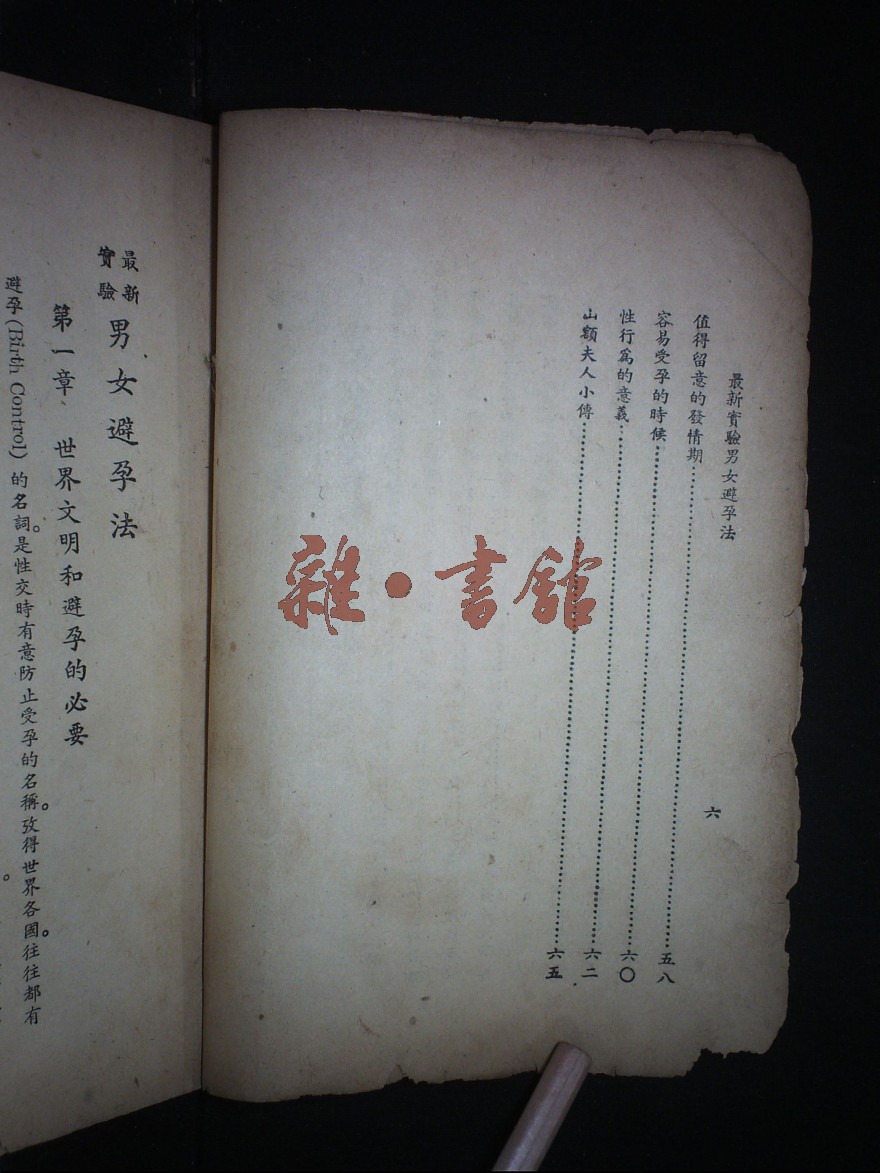 最新實驗男女避孕法
六
值得留意的發情期……五八
容易受孕的時候……六〇
性行為的意義……六二
山額夫人小傳……六五
雜·書館
最新
實驗
男女避孕法
第一章 世界文明和避孕的必要
避孕(Birth Control)的名詞。是性交時有意防止受孕的名稱。攷得世界各國。往往都有